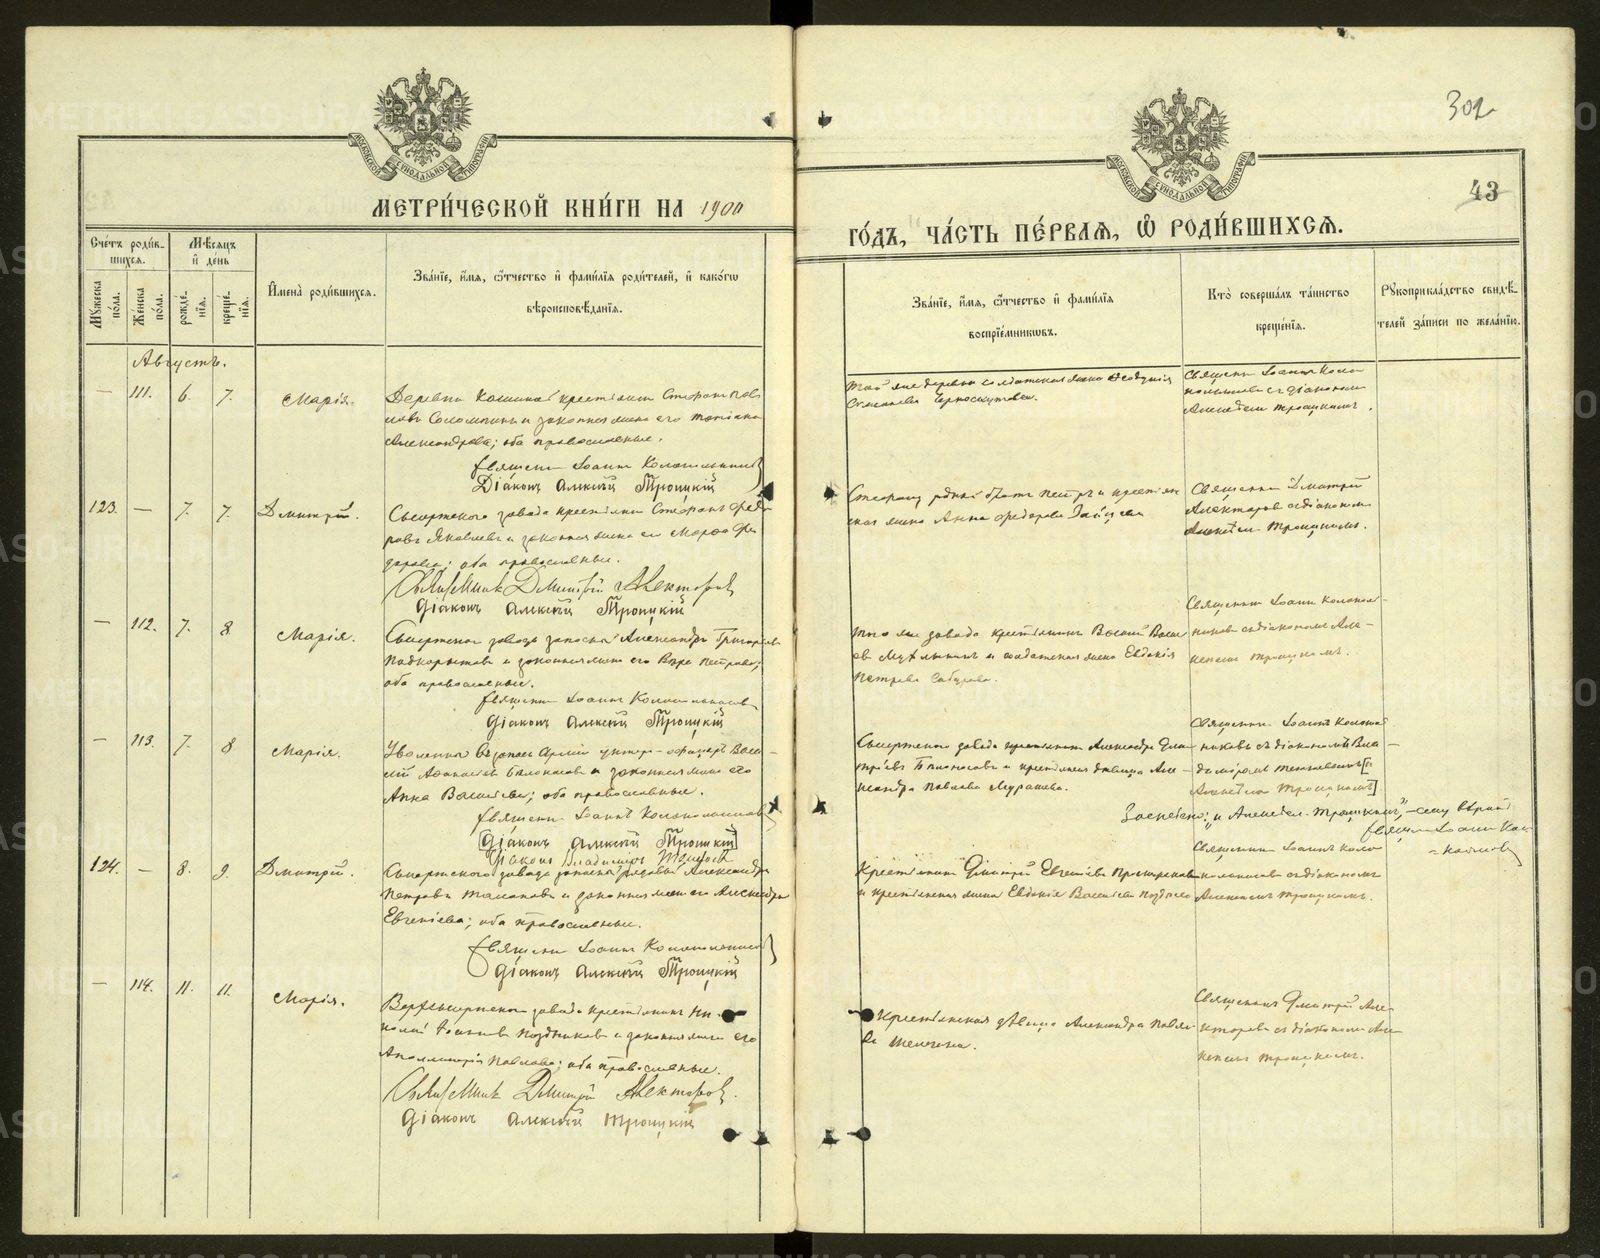 302
43
МОСКОВСКОЙ СУНОДАЛЬНОЙ ТИПОГРАФІИ
МОСКОВСКОЙ СУНОДАЛЬНОЙ ТИПОГРАФІИ
МЕТРИ́ЧЕСКОЙ КНИ́ГИ НА 1900
ГО́ДЪ, ЧА́СТЬ ПЕ́РВАѦ, Ѡ҆ РОДИ́ВШИХСѦ.
Сче́тъ роди́в-
шихсѧ.
Мѣ́сѧцъ
и҆ де́нь
Мꙋ́жеска по́ла.
Же́нска по́ла.
рожде́-нїѧ.
креще́-нїѧ.
И҆мена̀ роди́вшихсѧ.
Зва́нїе, и҆́мѧ, ѻ҆́тчество и҆ фами́лїѧ роди́телей, и҆ како́гѡ
вѣроисповѣ́данїѧ.
Зва́нїе, и҆́мѧ, ѻ҆́тчество и҆ фами́лїѧ
воспрїе́мникѡвъ.
Кто̀ соверша́лъ та́инство
креще́нїѧ.
Рꙋкоприкла́дство свидѣ́-
телей за́писи по жела́нїю.
Августъ.
— 111. 6. 7. Марія.
Деревни крестьянинъ Стефанъ Пав
ловъ Соломеинъ и законная жена его Татіана
Александрова; оба православные.
Священникъ Іоаннъ Колокольниковъ
Діаконъ Алексій Троицкій
Той же деревни солдатская жена Ѳеодосія
Степанова Черноскутова.
Священникъ Іоаннъ Коло
кольниковъ съ діакономъ
Алексѣемъ Троицкимъ.
123. — 7. 7. Дмитрій.
Сысертскаго завода крестьянинъ Стефанъ Ѳедо
ровъ Яковлевъ и законная жена его Марѳа Ѳе
дорова; оба православные.
Священникъ Дмитрій Алекторовъ
Діаконъ Алексій Троицкій
родной братъ Петръ и крестьян
ская жена Анна Ѳедорова
Священникъ Дмитрій
Алекторовъ съ діакономъ
Алексѣемъ Троицкимъ.
— 112. 7. 8. Марія.
Сысертскаго завода запасной Александръ Григорьевъ
Подкорытовъ и законная жена его Вѣра Петрова;
оба православные.
Священникъ Іоаннъ Колокольниковъ
Діаконъ Алексій Троицкій
Того же завода крестьянинъ Василій Васильевъ
и солдатская жена Евдокія
Петрова
Священникъ Іоаннъ Колоколь-
никовъ съ діакономъ Але-
ксѣемъ Троицкимъ.
— 113. 7. 8 Марія.
Уволенный въ запасъ Арміи унтеръ-офицеръ Васи-
лій Аѳанасьевъ и законная жена его
Анна Васильева; оба православные.
Священникъ Іоаннъ Колокольниковъ
[Діаконъ Алексій Троицкій]
Діаконъ Владиміръ
Сысертскаго завода крестьянинъ Александръ Дми-
тріевъ и крестьянская дѣвица Але-
ксандра Павлова Мурашева.
Священникъ Іоаннъ Колоколь-
никовъ съ діакономъ Вла-
диміромъ [и
Алексѣемъ Троицкимъ]
„и Алексѣемъ Троицкимъ",—сему вѣрить
Священникъ Іоаннъ Коло-
124. — 8. 9. Дмитрій.
Сысертскаго завода запасной рядовой Александръ
Петровъ и законная жена его Александра
Евгеніева; оба православные.
Священникъ Іоаннъ Колокольниковъ
Діаконъ Алексій Троицкій
Крестьянинъ Дмитрій Евгеніевъ
и крестьянская жена Евдокія Васильева
Священникъ Іоаннъ Коло
кольниковъ съ діакономъ
Алексѣемъ Троицкимъ.
— 114. 11. 11. Марія.
Верхсысертскаго завода крестьянинъ Ни-
колай Іоанновъ Поздняковъ и законная жена его
Аполлинарія Павлова; оба православные.
Священникъ Дмитрій Алекторовъ.
Діаконъ Алексій Троицкій
Крестьянская дѣвица Александра Павло-
ва
Священникъ Дмитрій Але-
кторовъ съ діакономъ Але-
ксѣемъ Троицкимъ.